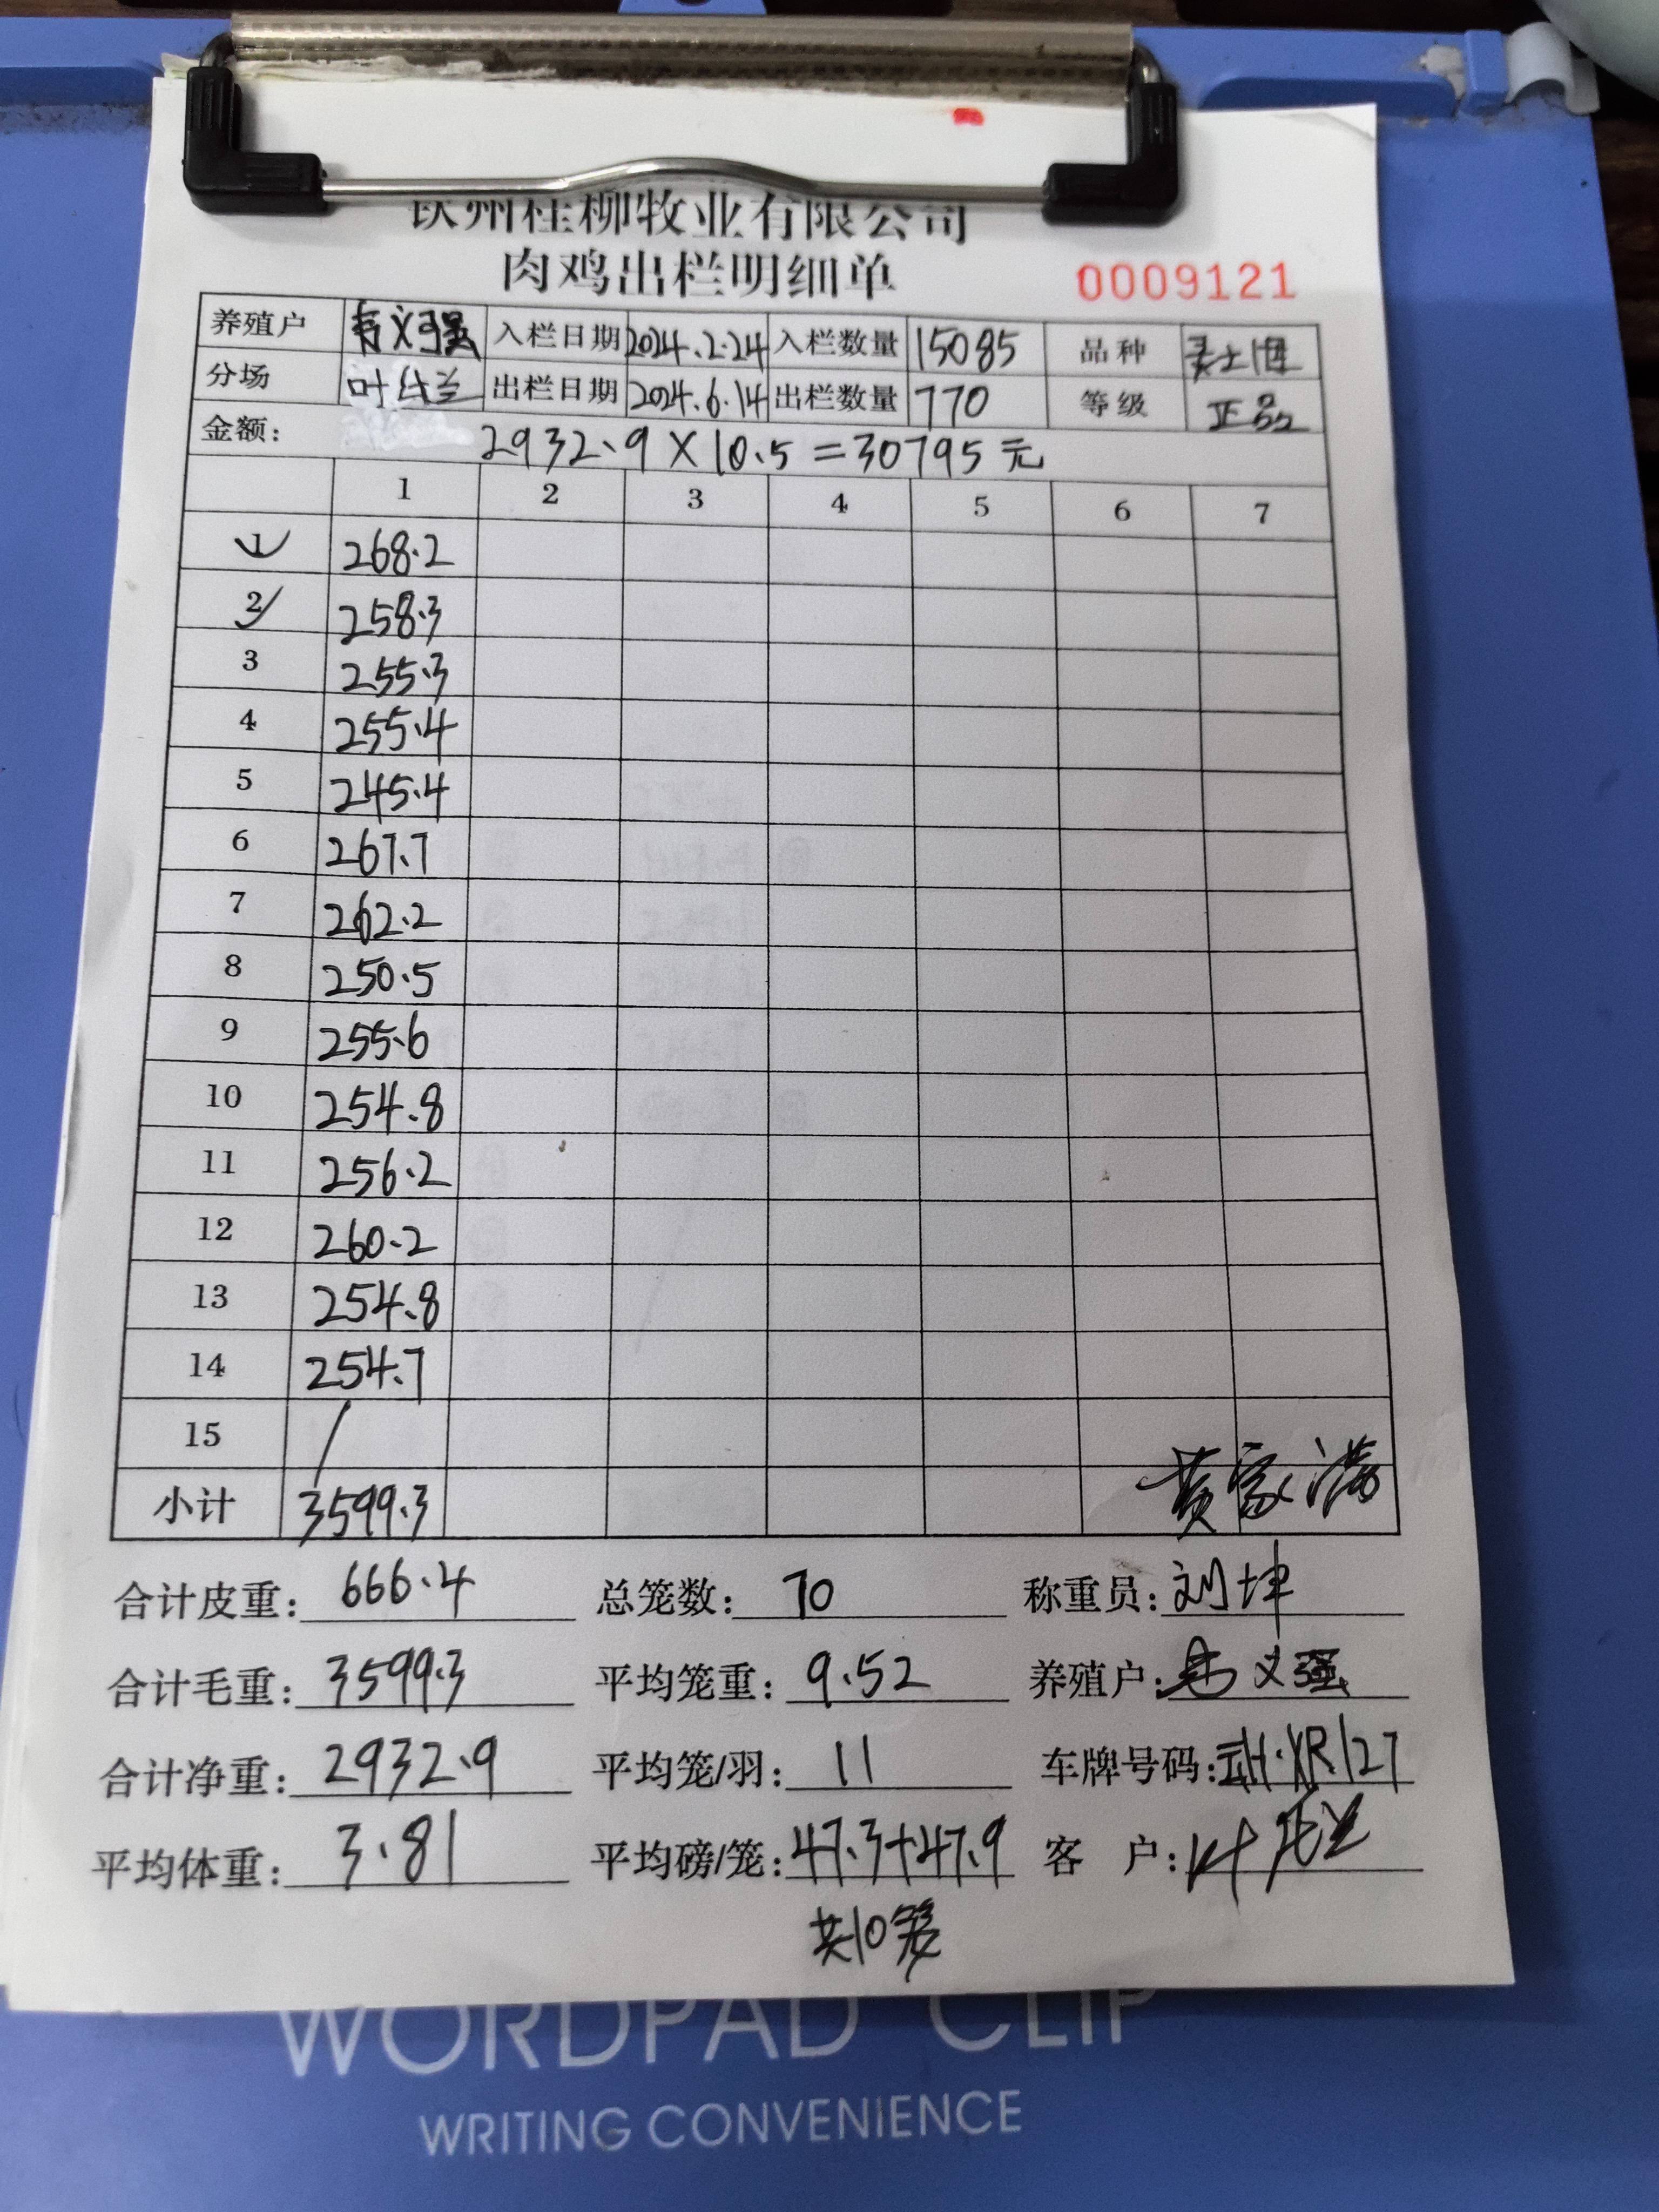 钦州桂柳牧业有限公司
肉鸡出栏明细单 0009121
养殖户 义强 入栏日期 2024.2.24 入栏数量 15085 品种
分场 叶红兰 出栏日期 2024.6.14 出栏数量 770 等级 正品
金额: 2932.9×10.5=30795元
1 2 3 4 5 6 7
1 268.2
2 258.3
3 255.3
4 255.4
5 245.4
6 267.7
7 262.2
8 250.5
9 255.6
10 254.8
11 256.2
12 260.2
13 254.8
14 254.7
15 /
小计 3599.3 黄家满
合计皮重: 666.4 总笼数: 70 称重员: 刘坤
合计毛重: 3599.3 平均笼重: 9.52 养殖户: 义强
合计净重: 2932.9 平均笼/羽: 11 车牌号码:
平均体重: 3.81 平均磅/笼: 47.3+47.9 客 户: 叶
共10笼
WORDPAD CLIP
WRITING CONVENIENCE